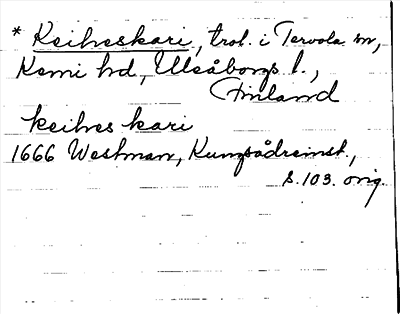 * Keiheskari, trol. i Tervola sn,
Kemi hd, Uleåborgs l.,
Finland
keihes kari
1666 Westman, Kungsådreinst.,
s. 103. orig.